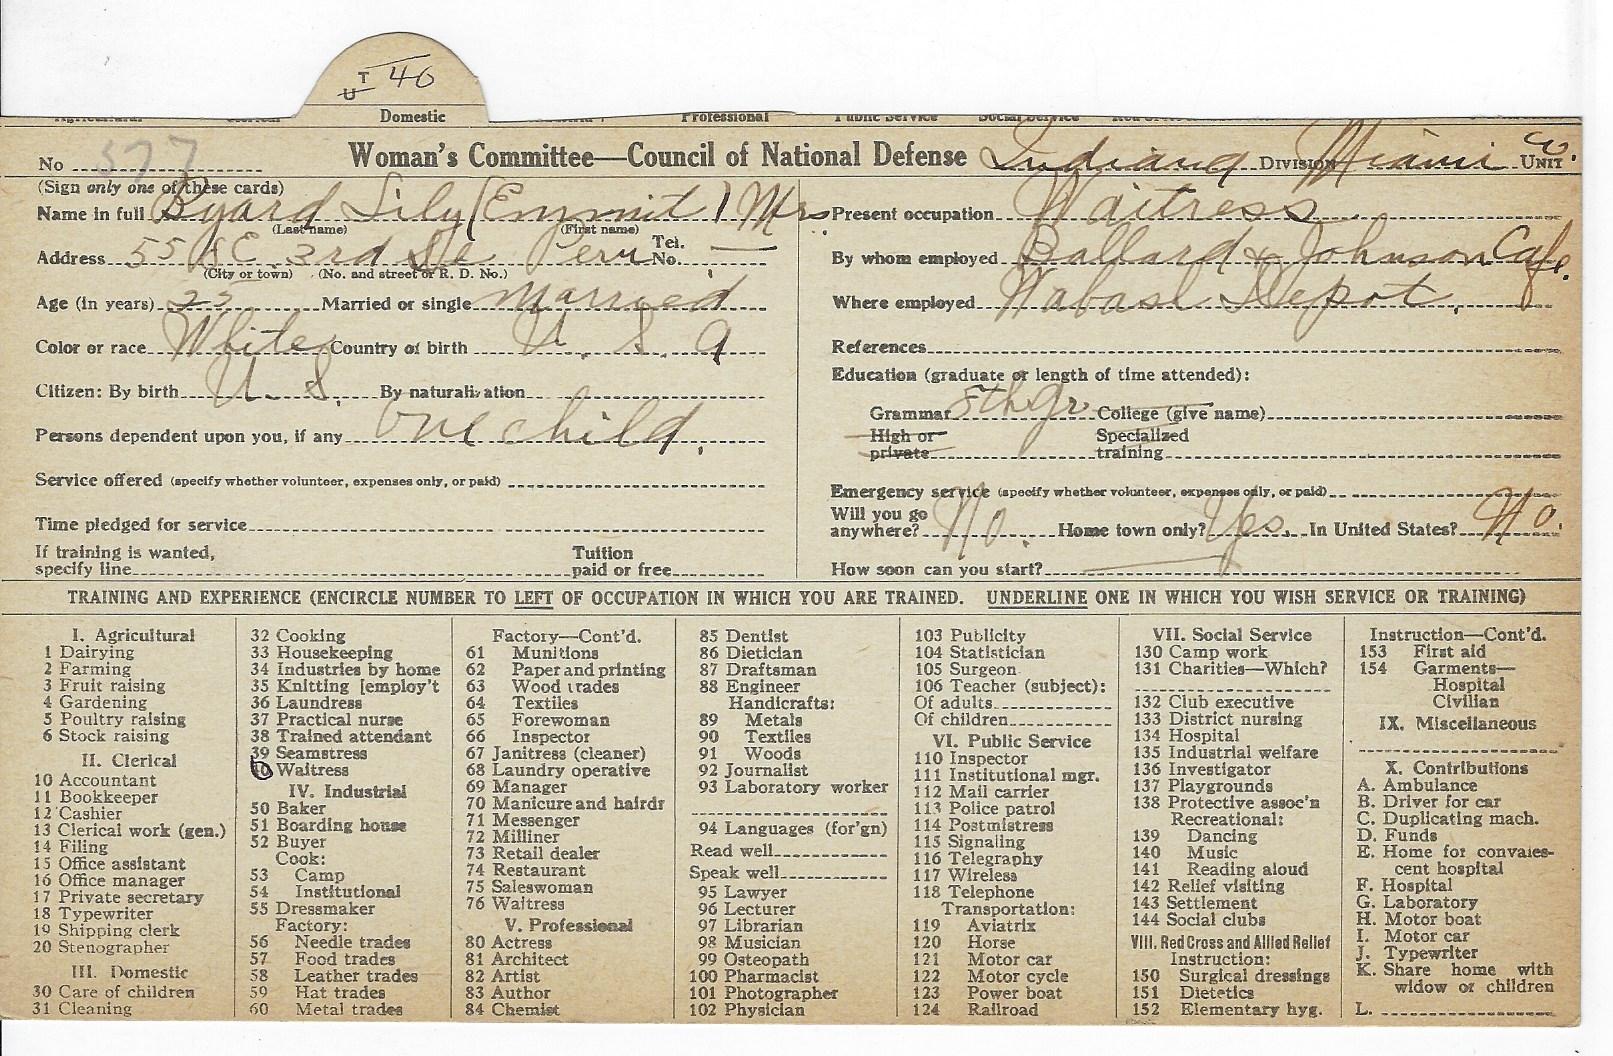 T 40
U
Domestic
Professional Public Service Social Service
No 577 Woman's Committee—Council of National Defense Indiana Division Miami Co. Unit
(Sign only one of these cards)
Name in full Byard Lily (Emmit) Mrs
(Last name) (First name)
Address 55 E. 3rd St Peru Tel. No. —
(City or town) (No. and street or R. D. No.)
Age (in years) 25 Married or single Married
Color or race White Country of birth U. S. A
Citizen: By birth U. S. By naturalization
Persons dependent upon you, if any One child.
Service offered (specify whether volunteer, expenses only, or paid)
Time pledged for service
If training is wanted, specify line Tuition paid or free
Present occupation Waitress
By whom employed Ballard & Johnson Cafe.
Where employed Wabash Depot.
References
Education (graduate or length of time attended):
Grammar 5th Gr College (give name)
High or private Specialized training
Emergency service (specify whether volunteer, expenses only, or paid)
Will you go anywhere? No. Home town only? Yes. In United States? No.
How soon can you start? —
TRAINING AND EXPERIENCE (ENCIRCLE NUMBER TO LEFT OF OCCUPATION IN WHICH YOU ARE TRAINED. UNDERLINE ONE IN WHICH YOU WISH SERVICE OR TRAINING)
I. Agricultural
1 Dairying
2 Farming
3 Fruit raising
4 Gardening
5 Poultry raising
6 Stock raising
II. Clerical
10 Accountant
11 Bookkeeper
12 Cashier
13 Clerical work (gen.)
14 Filing
15 Office assistant
16 Office manager
17 Private secretary
18 Typewriter
19 Shipping clerk
20 Stenographer
III. Domestic
30 Care of children
31 Cleaning
32 Cooking
33 Housekeeping
34 Industries by home
35 Knitting [employ't
36 Laundress
37 Practical nurse
38 Trained attendant
39 Seamstress
40 Waitress
IV. Industrial
50 Baker
51 Boarding house
52 Buyer
Cook:
53 Camp
54 Institutional
55 Dressmaker
Factory:
56 Needle trades
57 Food trades
58 Leather trades
59 Hat trades
60 Metal trades
Factory—Cont'd.
61 Munitions
62 Paper and printing
63 Wood trades
64 Textiles
65 Forewoman
66 Inspector
67 Janitress (cleaner)
68 Laundry operative
69 Manager
70 Manicure and hairdr
71 Messenger
72 Milliner
73 Retail dealer
74 Restaurant
75 Saleswoman
76 Waitress
V. Professional
80 Actress
81 Architect
82 Artist
83 Author
84 Chemist
85 Dentist
86 Dietician
87 Draftsman
88 Engineer
Handicrafts:
89 Metals
90 Textiles
91 Woods
92 Journalist
93 Laboratory worker
94 Languages (for'gn)
Read well
Speak well
95 Lawyer
96 Lecturer
97 Librarian
98 Musician
99 Osteopath
100 Pharmacist
101 Photographer
102 Physician
103 Publicity
104 Statistician
105 Surgeon
106 Teacher (subject):
Of adults
Of children
VI. Public Service
110 Inspector
111 Institutional mgr.
112 Mail carrier
113 Police patrol
114 Postmistress
115 Signaling
116 Telegraphy
117 Wireless
118 Telephone
Transportation:
119 Aviatrix
120 Horse
121 Motor car
122 Motor cycle
123 Power boat
124 Railroad
VII. Social Service
130 Camp work
131 Charities—Which?
132 Club executive
133 District nursing
134 Hospital
135 Industrial welfare
136 Investigator
137 Playgrounds
138 Protective assoc'n
Recreational:
139 Dancing
140 Music
141 Reading aloud
142 Relief visiting
143 Settlement
144 Social clubs
VIII. Red Cross and Allied Relief
Instruction:
150 Surgical dressings
151 Dietetics
152 Elementary hyg.
Instruction—Cont'd.
153 First aid
154 Garments—
Hospital
Civilian
IX. Miscellaneous
X. Contributions
A. Ambulance
B. Driver for car
C. Duplicating mach.
D. Funds
E. Home for convales-
cent hospital
F. Hospital
G. Laboratory
H. Motor boat
I. Motor car
J. Typewriter
K. Share home with
widow or children
L.